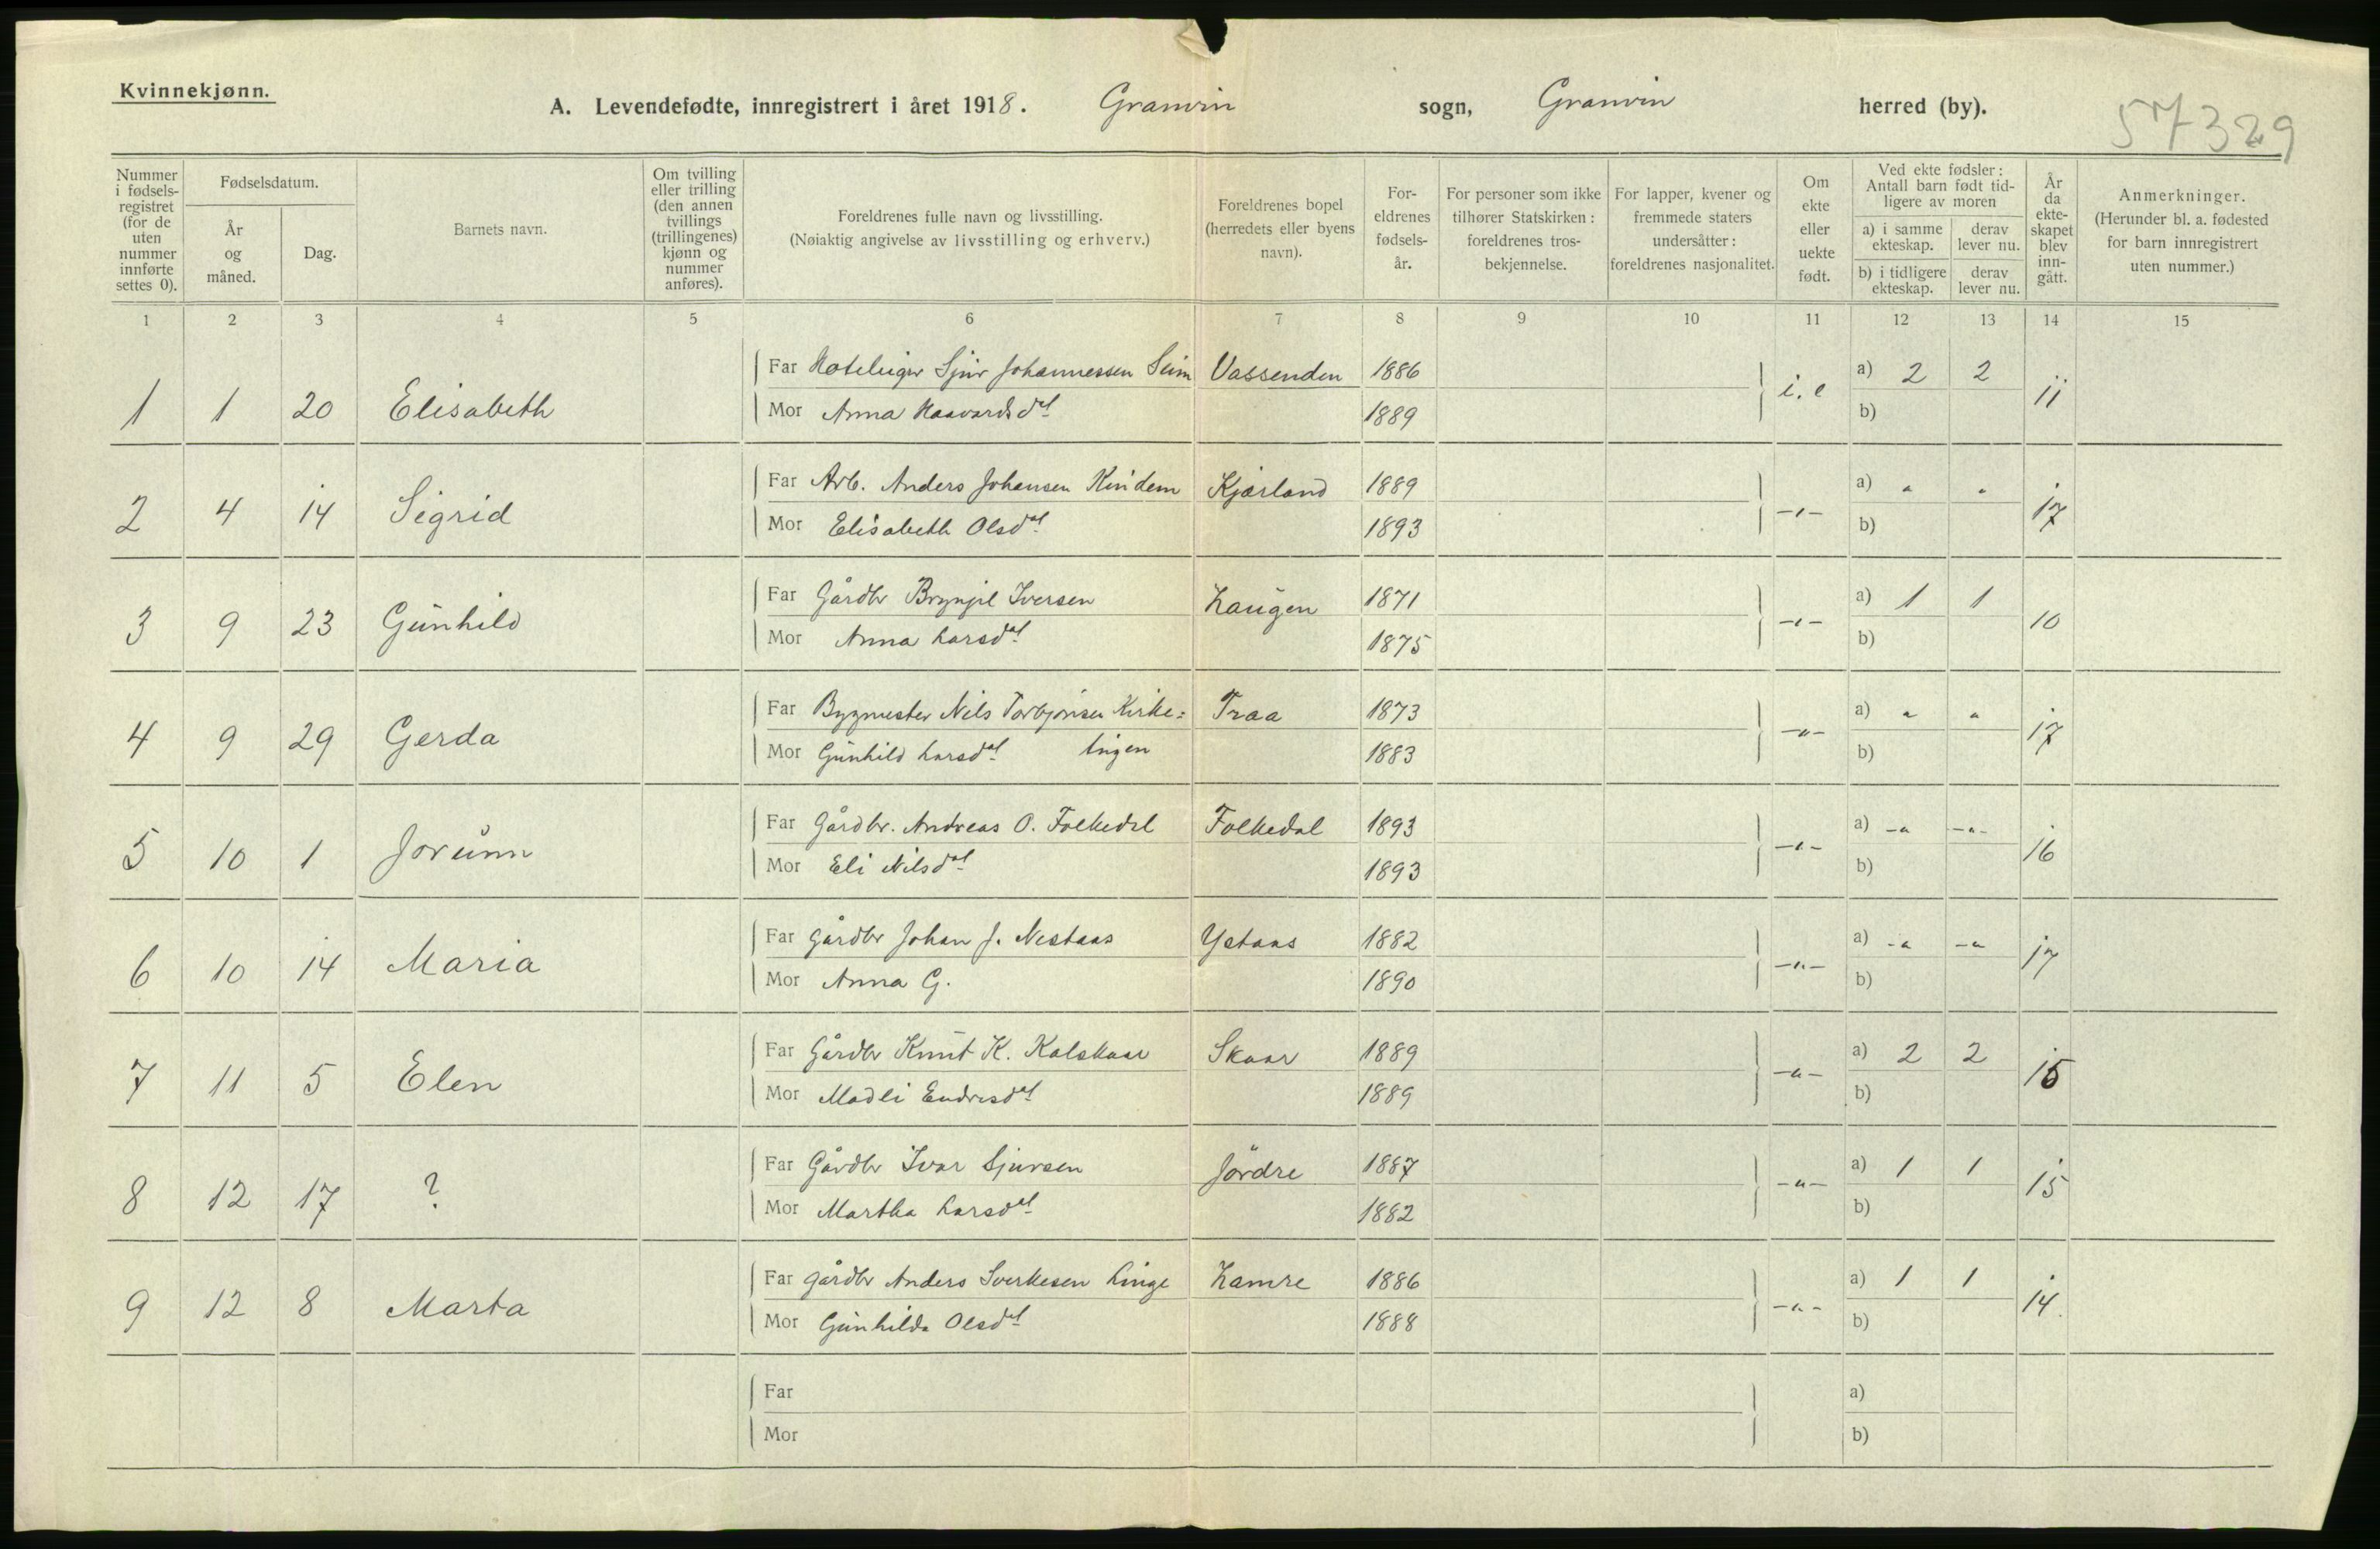 Kvinnekjønn.
A. Levendefødte, innregistrert i året 1918. Granvin sogn, Granvin herred (by).
57329
Nummer i fødselsregistret (for de uten nummer innførte settes 0).
Fødselsdatum.
År og måned.
Dag.
Barnets navn.
Om tvilling eller trilling (den annen tvillings (trillingenes) kjønn og nummer anføres).
Foreldrenes fulle navn og livsstilling.
(Nøiaktig angivelse av livsstilling og erhverv.)
Foreldrenes bopel (herredets eller byens navn).
Foreldrenes fødselsår.
For personer som ikke tilhører Statskirken: foreldrenes trosbekjennelse.
For lapper, kvener og fremmede staters undersåtter: foreldrenes nasjonalitet.
Om ekte eller uekte født.
Ved ekte fødsler: Antall barn født tidligere av moren
a) i samme ekteskap. derav lever nu.
b) i tidligere ekteskap. derav lever nu.
År da ekteskapet blev inngått.
Anmerkninger.
(Herunder bl. a. fødested for barn innregistrert uten nummer.)
1 2 3 4 5 6 7 8 9 10 11 12 13 14 15
Far Hoteleiger Sjur Johannessen Seim Vassenden 1886 a) 2 2
1 1 20 Elisabeth i. e 11
Mor Anna Haavardsdat 1889 b)
Far Arb. Anders Johansen Kindem Kjærland 1889 a) " "
2 4 14 Sigrid -"- 17
Mor Elisabeth Olsdat 1893 b)
Far Gårdbr Brynjel Iversen Haugen 1871 a) 1 1
3 9 23 Gunhild -"- 10
Mor Anna Larsdat 1875 b)
Far Bygmester Nils Torbjørnsen Kirke= Traa 1873 a) " "
4 9 29 Gerda -"- 17
Mor Gunhild Larsdat tingen 1883 b)
Far Gårdbr. Andreas O. Folkedal Folkedal 1893 a) -" -"-
5 10 1 Jorunn -"- 16
Mor Eli Nilsdat 1893 b)
Far Gårdbr Johan J. Nestaas Ystaas 1882 a) -" -"
6 10 14 Maria -"- 17
Mor Anna G. 1890 b)
Far Gårdbr Knut K. Kolskaar Skaar 1889 a) 2 2
7 11 5 Elen -"- 15
Mor Madli Endresdat 1889 b)
Far Gårdbr Ivar Sjursen Jördre 1887 a) 1 1
8 12 17 ? -"- 15
Mor Martha Larsdat 1882 b)
Far Gårdbr Anders Sverkesen Linge Hamre 1886 a) 1 1
9 12 8 Marta -"- 14.
Mor Gunhilda Olsdat 1888 b)
Far a)
Mor b)